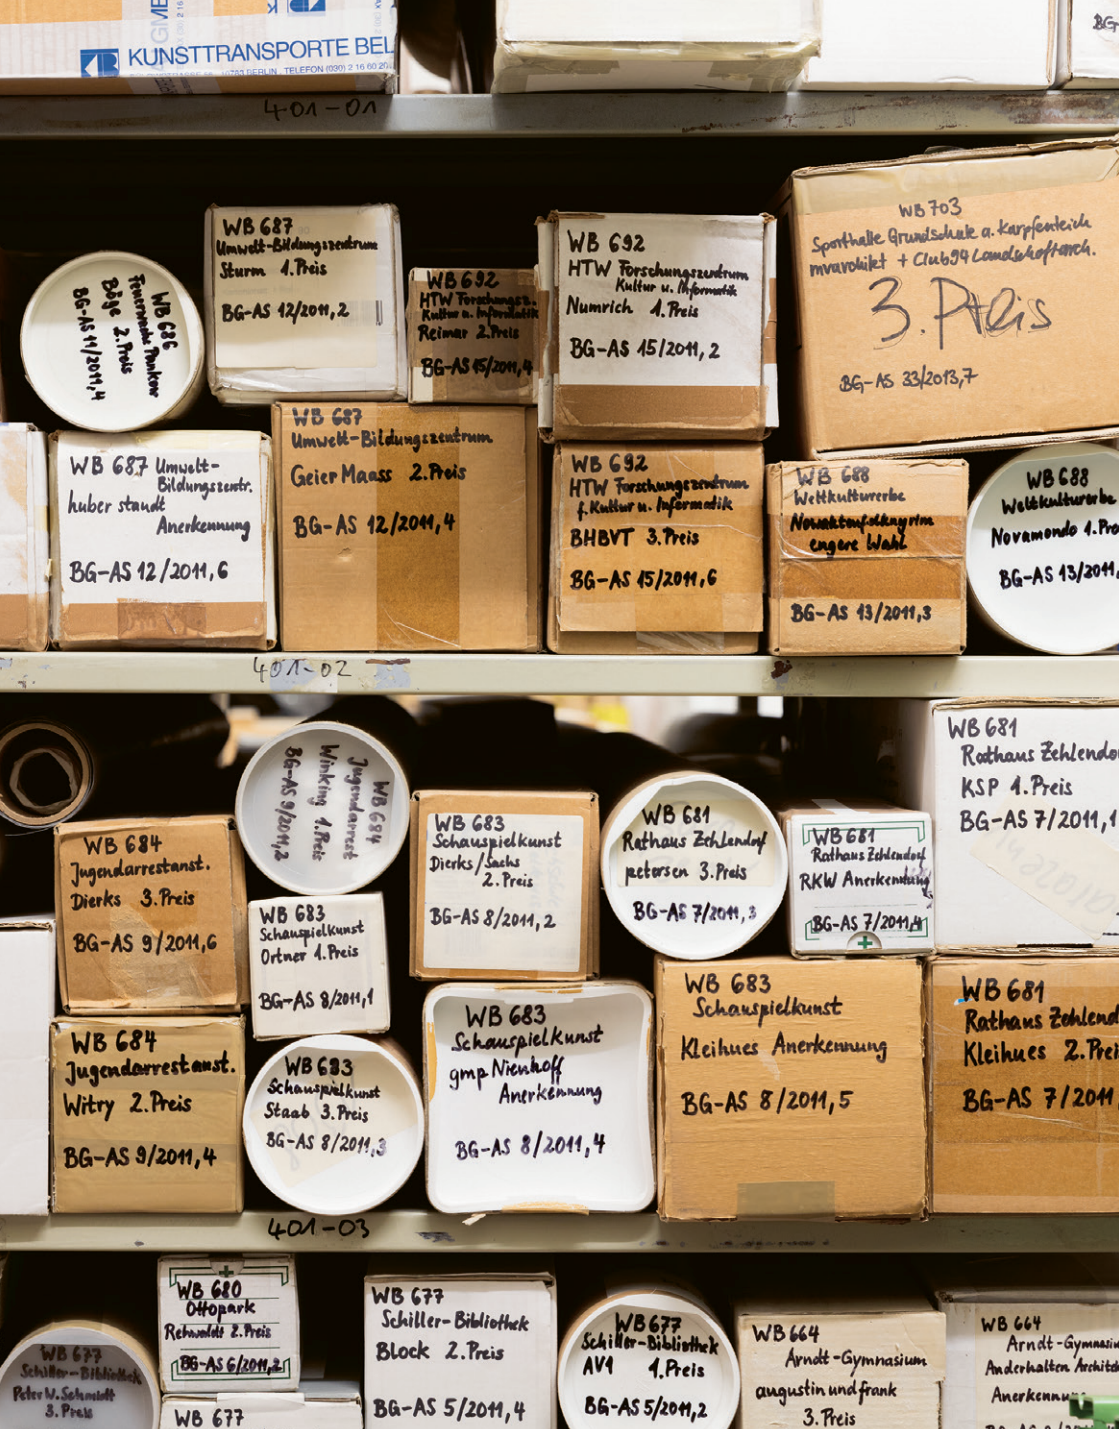 KUNSTTRANSPORTE BEL
10783 BERLIN TELEFON (030) 2 16 60 20
BG-
401-01
WB 686
Feuerwache Pankow
Böge 2. Preis
BG-AS 11/2011,4
WB 687
Umwelt-Bildungszentrum
Sturm 1. Preis
BG-AS 12/2011,2
WB 692
HTW Forschungsz.
Kultur u. Informatik
Reimar 2. Preis
BG-AS 15/2011,4
WB 692
HTW Forschungszentrum
Kultur u. Informatik
Numrich 1. Preis
BG-AS 15/2011,2
WB 703
Sporthalle Grundschule a. Karpfenteich
+ Club94 Landschaftsarch.
3. Preis
BG-AS 33/2013,7
WB 687 Umwelt-
Bildungszentr.
huber staudt
Anerkennung
BG-AS 12/2011,6
WB 687
Umwelt-Bildungszentrum
Geier Maass 2. Preis
BG-AS 12/2011,4
WB 692
HTW Forschungszentrum
f. Kultur u. Informatik
BHBVT 3. Preis
BG-AS 15/2011,6
WB 688
Weltkulturerbe
engere Wahl
BG-AS 13/2011,3
WB 688
Weltkulturerbe
Novamondo 1. Pre
BG-AS 13/2011,
401-02
WB 684
Jugendarrest
Winking 1. Preis
BG-AS 9/2011,2
WB 684
Jugendarrestanst.
Dierks 3. Preis
BG-AS 9/2011,6
WB 683
Schauspielkunst
Ortner 1. Preis
BG-AS 8/2011,1
WB 683
Schauspielkunst
Dierks/Sachs
2. Preis
BG-AS 8/2011,2
WB 681
Rathaus Zehlendorf
petersen 3. Preis
BG-AS 7/2011,3
WB 681
Rathaus Zehlendorf
RKW Anerkennung
BG-AS 7/2011,4
WB 681
Rathaus Zehlendo
KSP 1. Preis
BG-AS 7/2011,1
WB 684
Jugendarrestanst.
Witry 2. Preis
BG-AS 9/2011,4
WB 683
Schauspielkunst
Staab 3. Preis
BG-AS 8/2011,3
WB 683
Schauspielkunst
gmp Nienhoff
Anerkennung
BG-AS 8/2011,4
WB 683
Schauspielkunst
Kleihues Anerkennung
BG-AS 8/2011,5
WB 681
Rathaus Zehlend
Kleihues 2. Prei
BG-AS 7/2011
401-03
WB 677
Schiller-Bibliothek
Peter W. Schmidt
3. Preis
WB 680
Ottopark
Rehwaldt 2. Preis
BG-AS 6/2011,2
WB 677
WB 677
Schiller-Bibliothek
Block 2. Preis
BG-AS 5/2011,4
WB 677
Schiller-Bibliothek
AV1 1. Preis
BG-AS 5/2011,2
WB 664
Arndt-Gymnasium
augustin und frank
3. Preis
WB 664
Arndt-Gymnasiu
Anderhalten Archite
Anerkennung